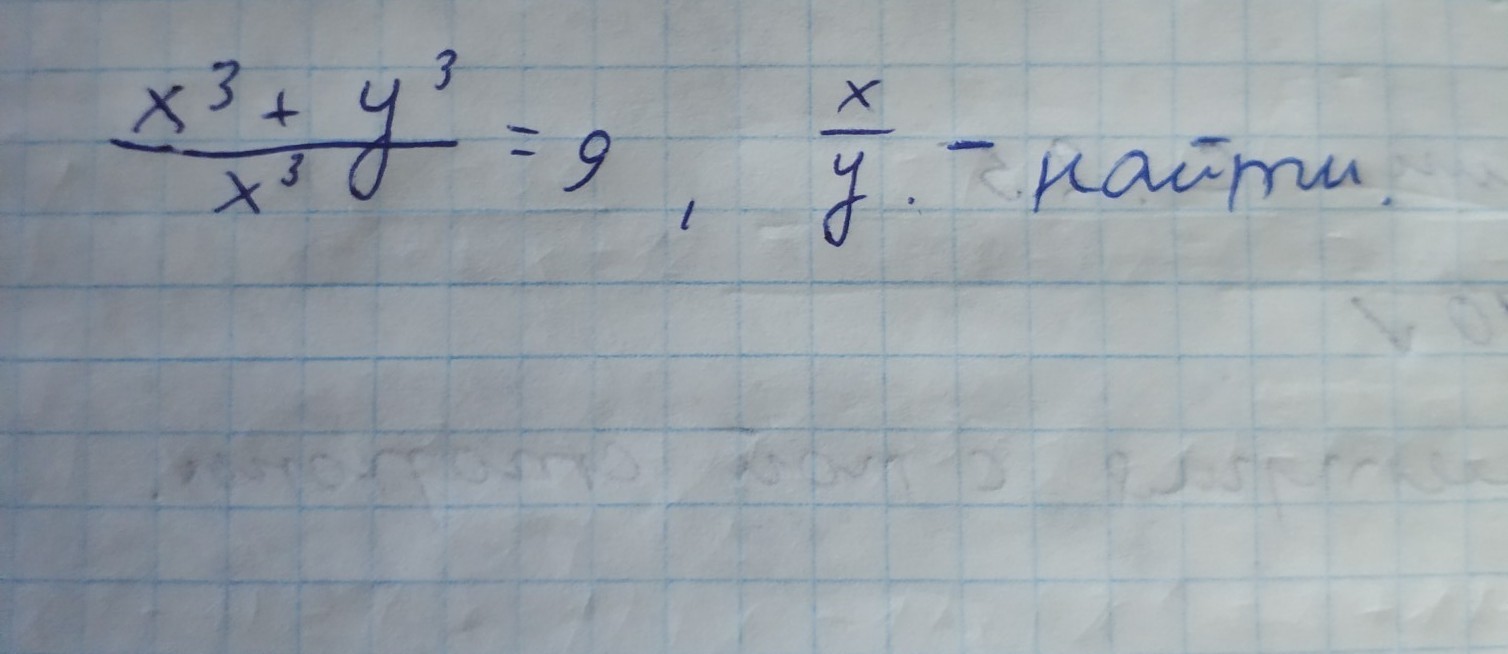 x³ + y³ / x³ = 9, x / y. - найти.